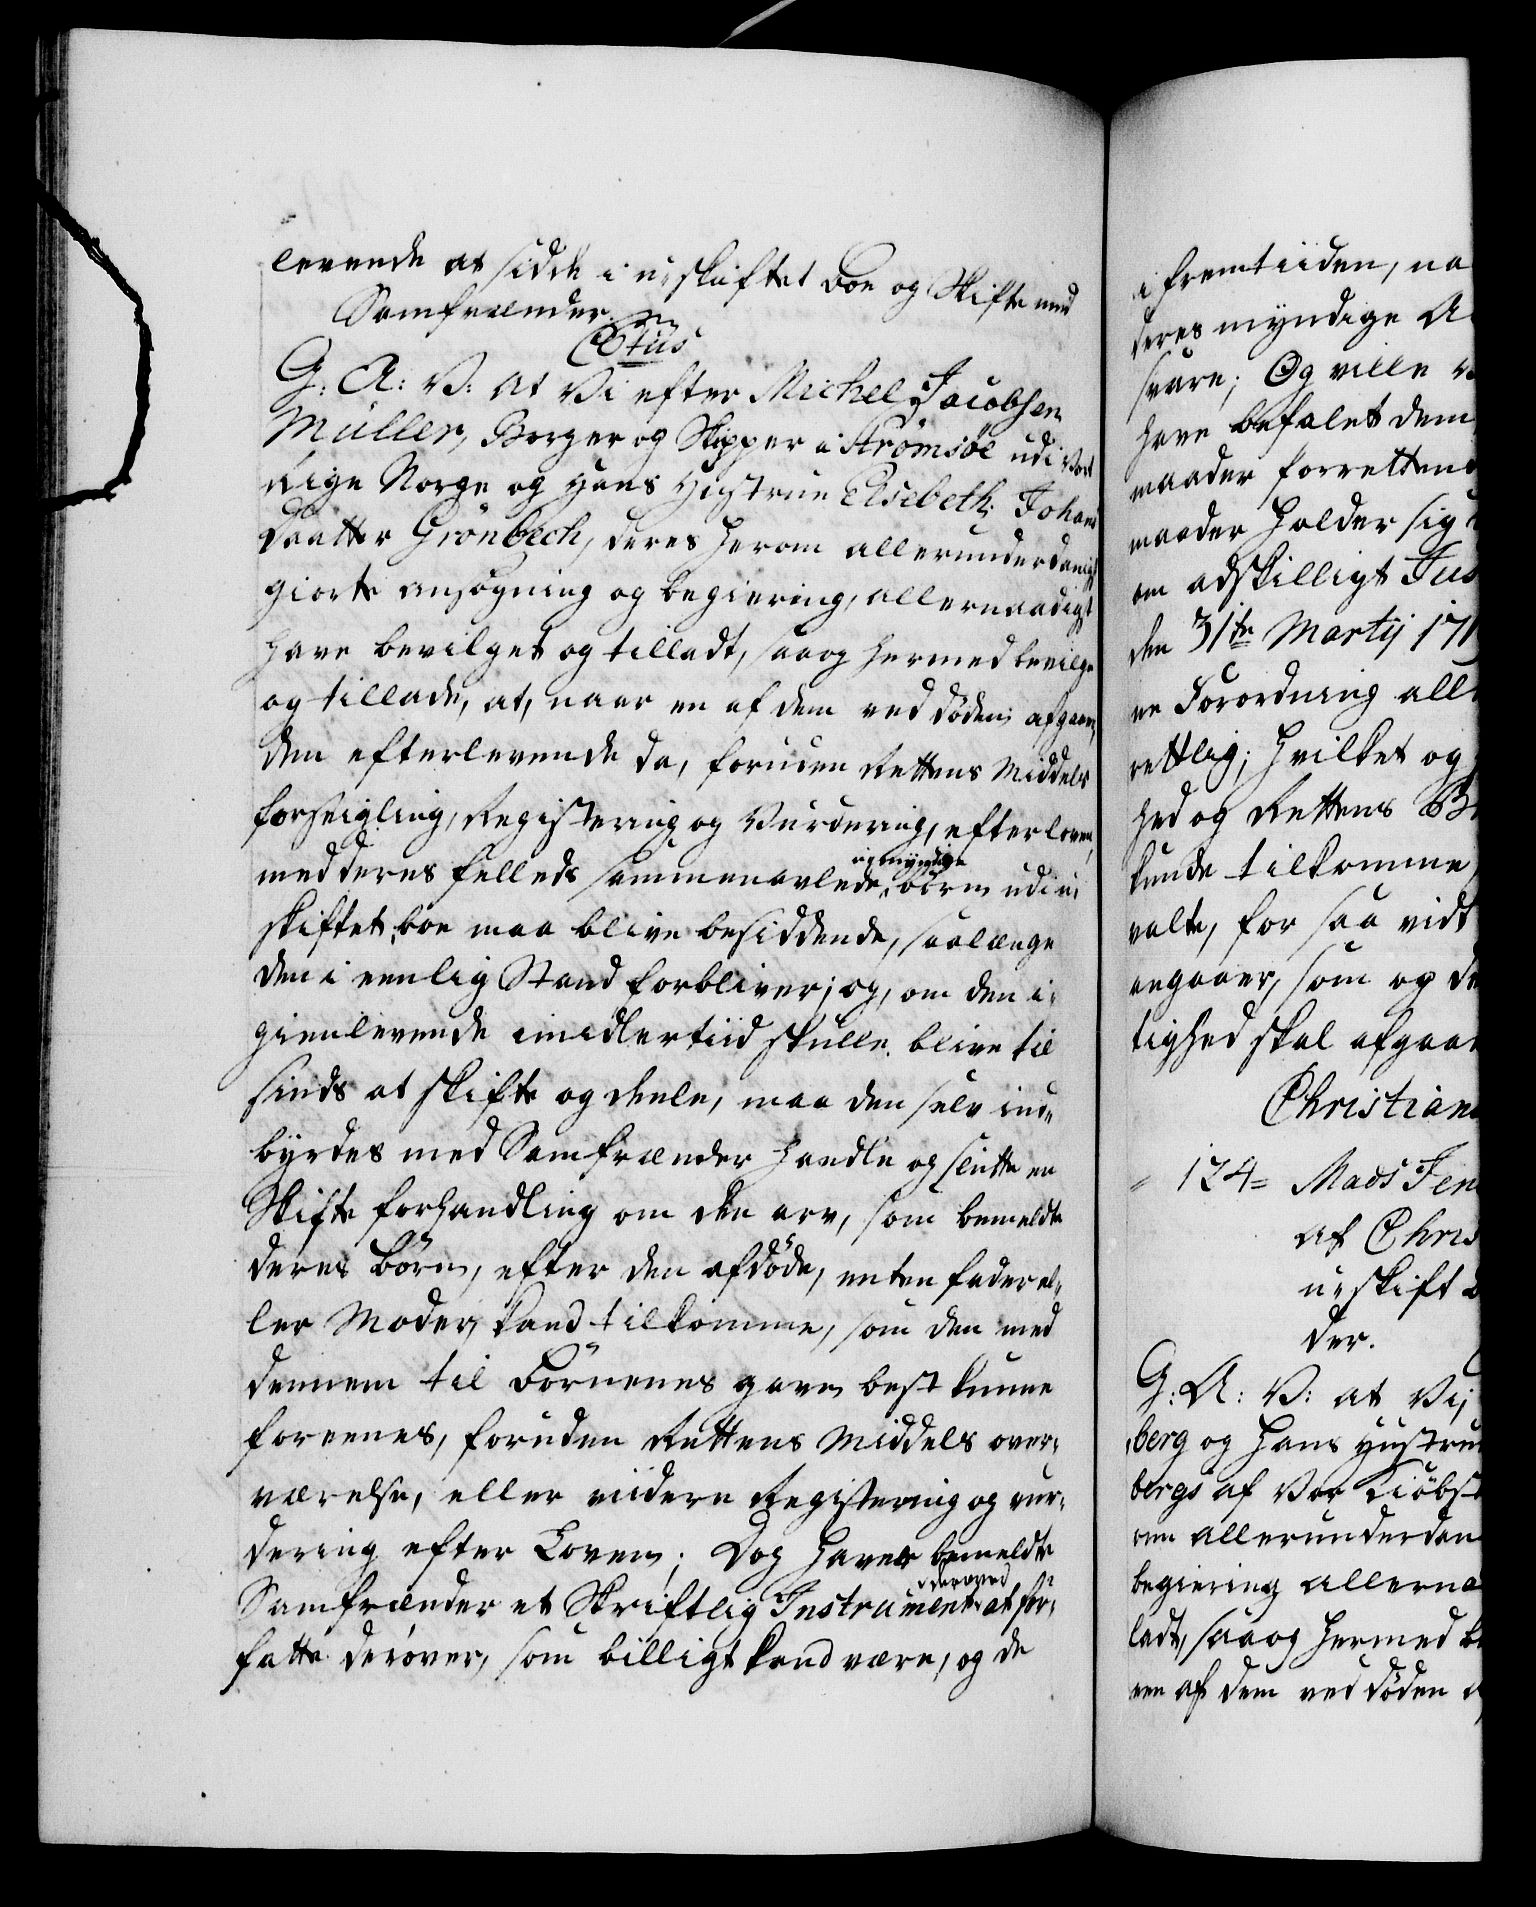 levende at sidde i u-skiftet Boe og Skifte med
Samfrænder.
C6tus
G: A: V: at Vi efter Michel Jacobsen
Müller, Borger og Skipper i Strømsöe udi Vort
Rige Norge og Hans Hustrue Elsebeth Johans
Daatter Grönbech, deres herom allerunderdanigst
giorte ansögning og begiering, allernaadigst
have bevilget og tilladt, saa og hermed bevilge
og tillade, at, naar en af dem ved döden afgaar,
den efterlevende da, foruden Rettens Middels
forseigling, Registering og Vurdering, efter loven,
med deres felleds sammenavlede umyndige börn udi u-
skiftet boe maa blive besiddende, saalænge
den i eenlig Stand forbliver; og, om den i-
gienlevende imidlertiid skulle blive til
sinds at skifte og deele, maa den selv ind-
byrdes med Samfrænder handle og slutte en
Skifte forhandling om den arv, som bemeldte
deres Börn, efter den afdöde, enten fader el-
ler Moder, kand tilkomme, som den med
dennem til Börnenes gavn best kunne
foreenes, foruden Rettens Middels over-
værelse, eller viidere Registering og vur-
dering efter Loven; Dog haver bemeldte
Samfrænder et Skriftlig Instrument derover at for-
fatte derover, som billigt kand være, og de
i fremtiiden, na
deres myndige A
svare; Og ville v
have befalet dem
maader forretten
maader holder sig
om adskilligt Jus
den 31te Martij 171
re Forordning all
rettlig; hvilket og
hed og Rettens B
kunde tilkomme
valte, for saa vidt
angaaer, som og de
tighed skal afgaa
Christian
= 124 = Mads Jen
af Chris
u-skift
der.
G: A: V: at Vi,
berg og Hans Hustrue
bergs af Vor Kiöbst
om allerunderdan
begiering allerna
ladt, saa og hermed be
een af dem ved döden